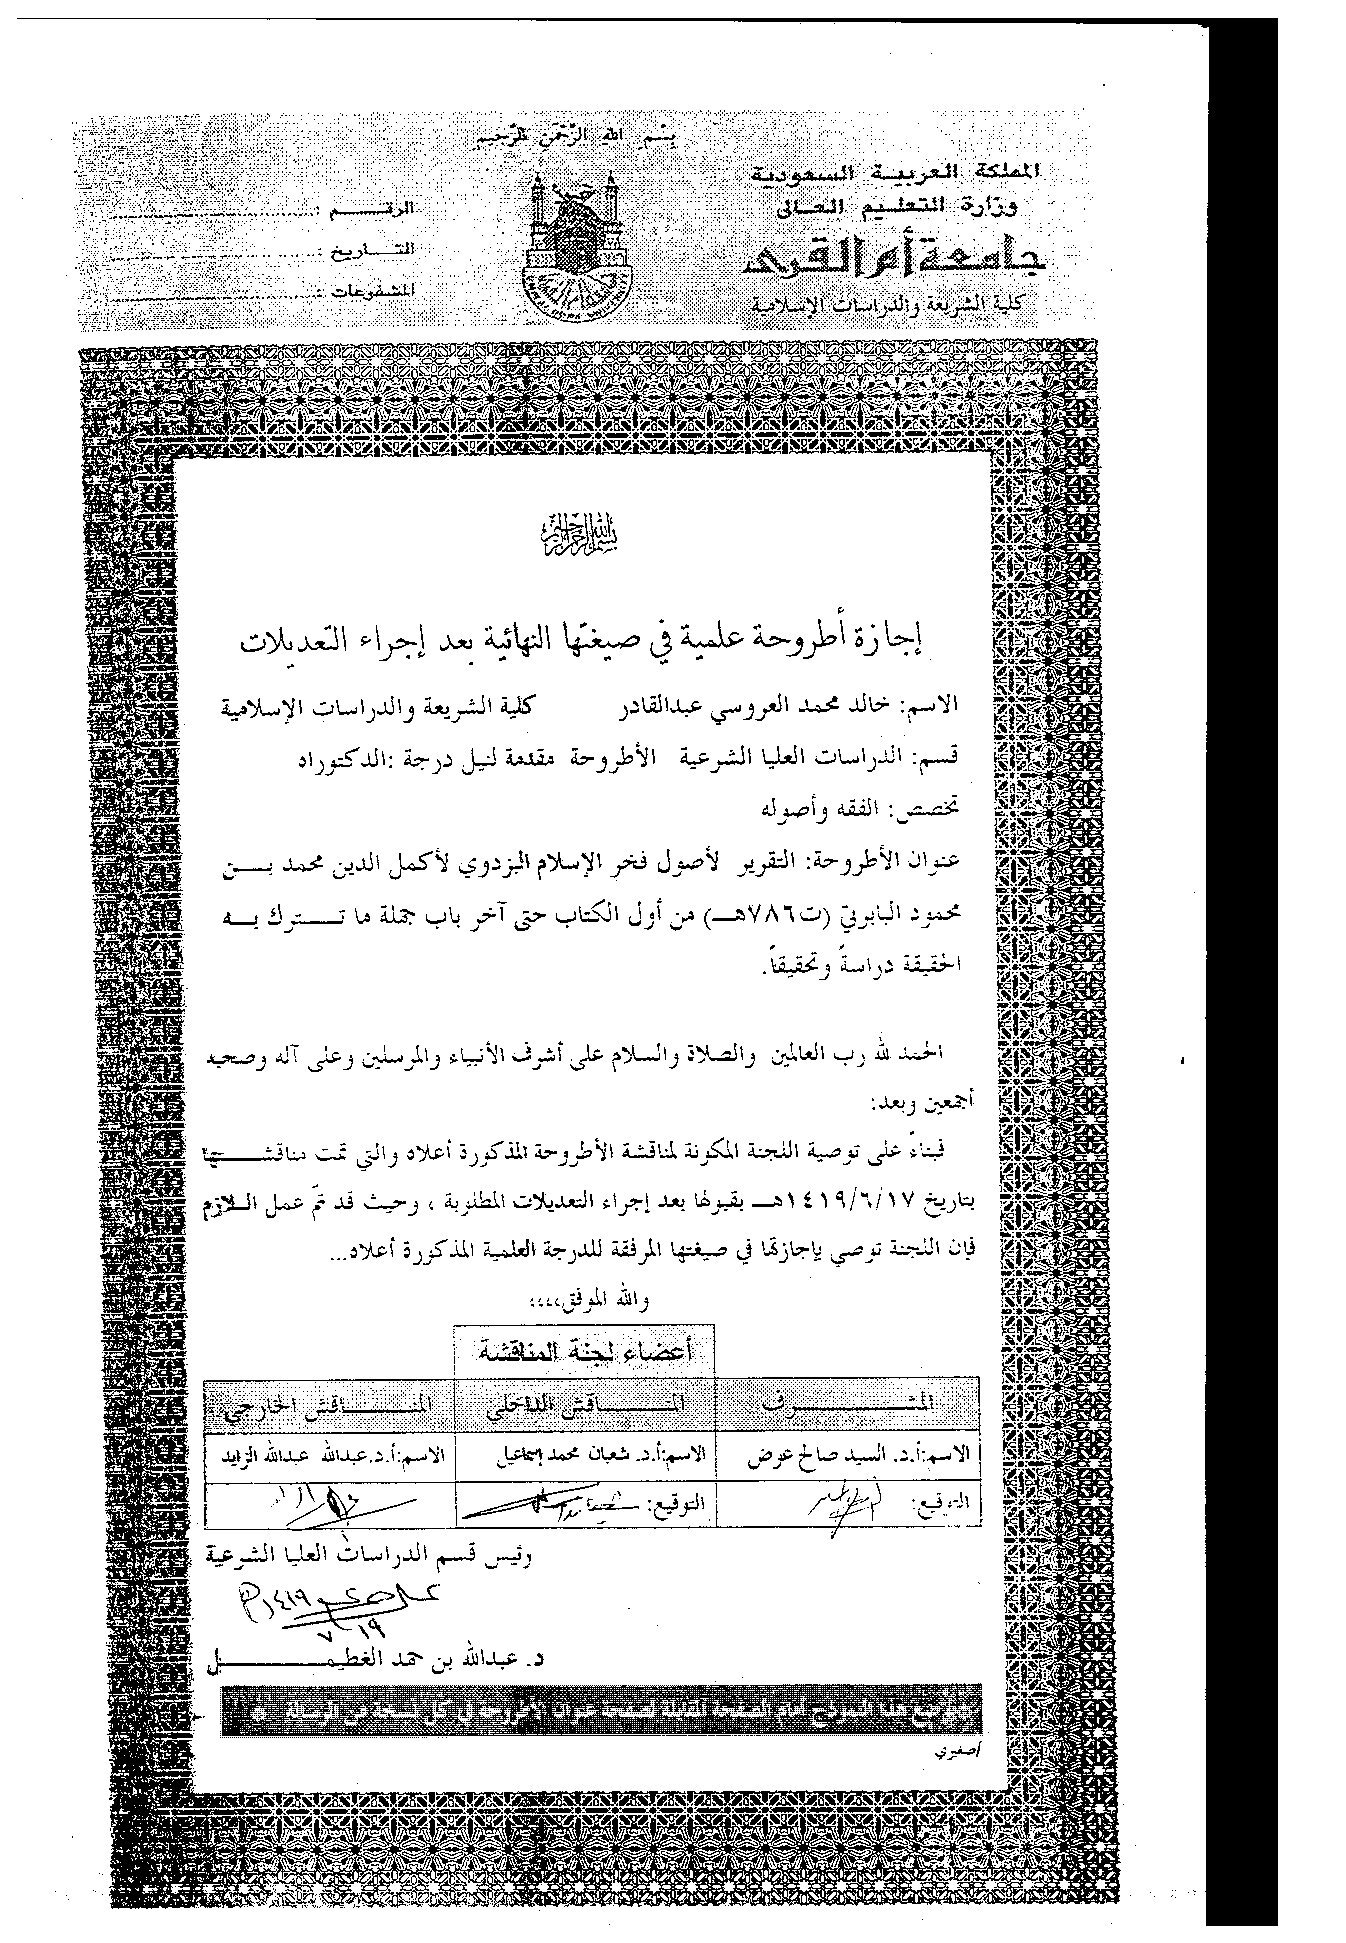 بسم الله الرحمن الرحيم
المملكة العربية السعودية
وزارة التعليم العالى
جامعة أم القرى
كلية الشريعة والدراسات الإسلامية
الرقـــم :
التـــاريخ :
المشفوعات :
بسم الله الرحمن الرحيم
إجازة أطروحة علمية في صيغتها النهائية بعد إجراء التعديلات
الاسم: خالد محمد العروسي عبدالقادر كلية الشريعة والدراسات الإسلامية
قسم: الدراسات العليا الشرعية الأطروحة مقدمة لنيل درجة :الدكتوراه
تخصص: الفقه وأصوله
عنوان الأطروحة: التقرير لأصول فخر الإسلام البزدوي لأكمل الدين محمد بـــن
محمود البابرتي (ت٧٨٦هـــ) من أول الكتاب حتى آخر باب جملة ما تـــترك بـــه
الحقيقة دراسةً وتحقيقاً.
الحمد لله رب العالمين والصلاة والسلام على أشرف الأنبياء والمرسلين وعلى آله وصحبه
أجمعين وبعد:
فبناءً على توصية اللجنة المكونة لمناقشة الأطروحة المذكورة أعلاه والتي تمت مناقشـــتها
بتاريخ ١٤١٩/٦/١٧هــ بقبولها بعد إجراء التعديلات المطلوبة ، وحيث قد تمّ عمل الـلازم
فإن اللجنة توصي بإجازتها في صيغتها المرفقة للدرجة العلمية المذكورة أعلاه...
والله الموفق،،،،
أعضاء لجنة المناقشة
المشـــــرف المنـــــاقش الداخلي المنـــــاقش الخارجي
الاسم:أ.د. السيد صالح عوض الاسم:أ.د. شعبان محمد إسماعيل الاسم:أ.د.عبدالله عبدالله الزايد
التوقيع: التوقيع:
رئيس قسم الدراسات العليا الشرعية
د. عبدالله بن حمد الغطيمـــــل
/صفيري